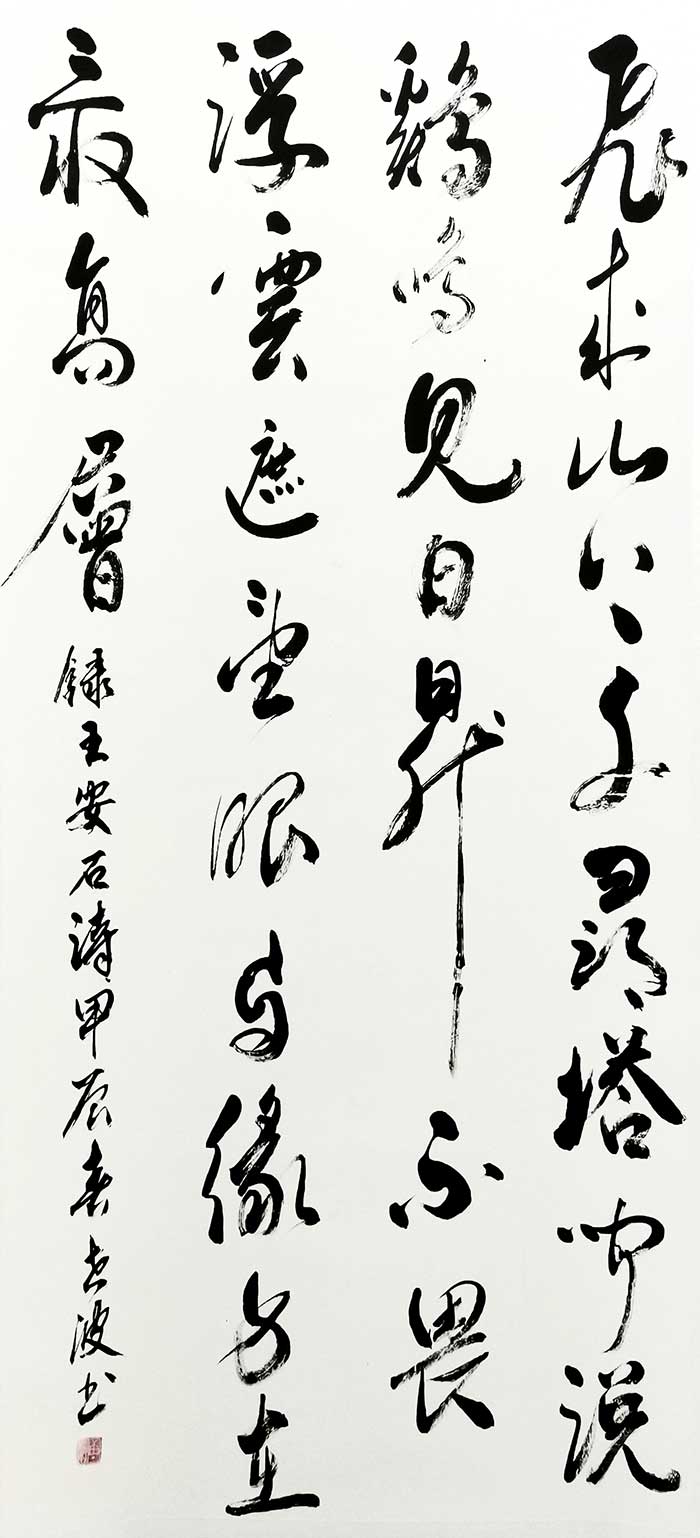 飛來山上千尋塔聞説
鷄鳴見日昇不畏
浮雲遮望眼自緣身在
最高層
録王安石詩甲辰春波書